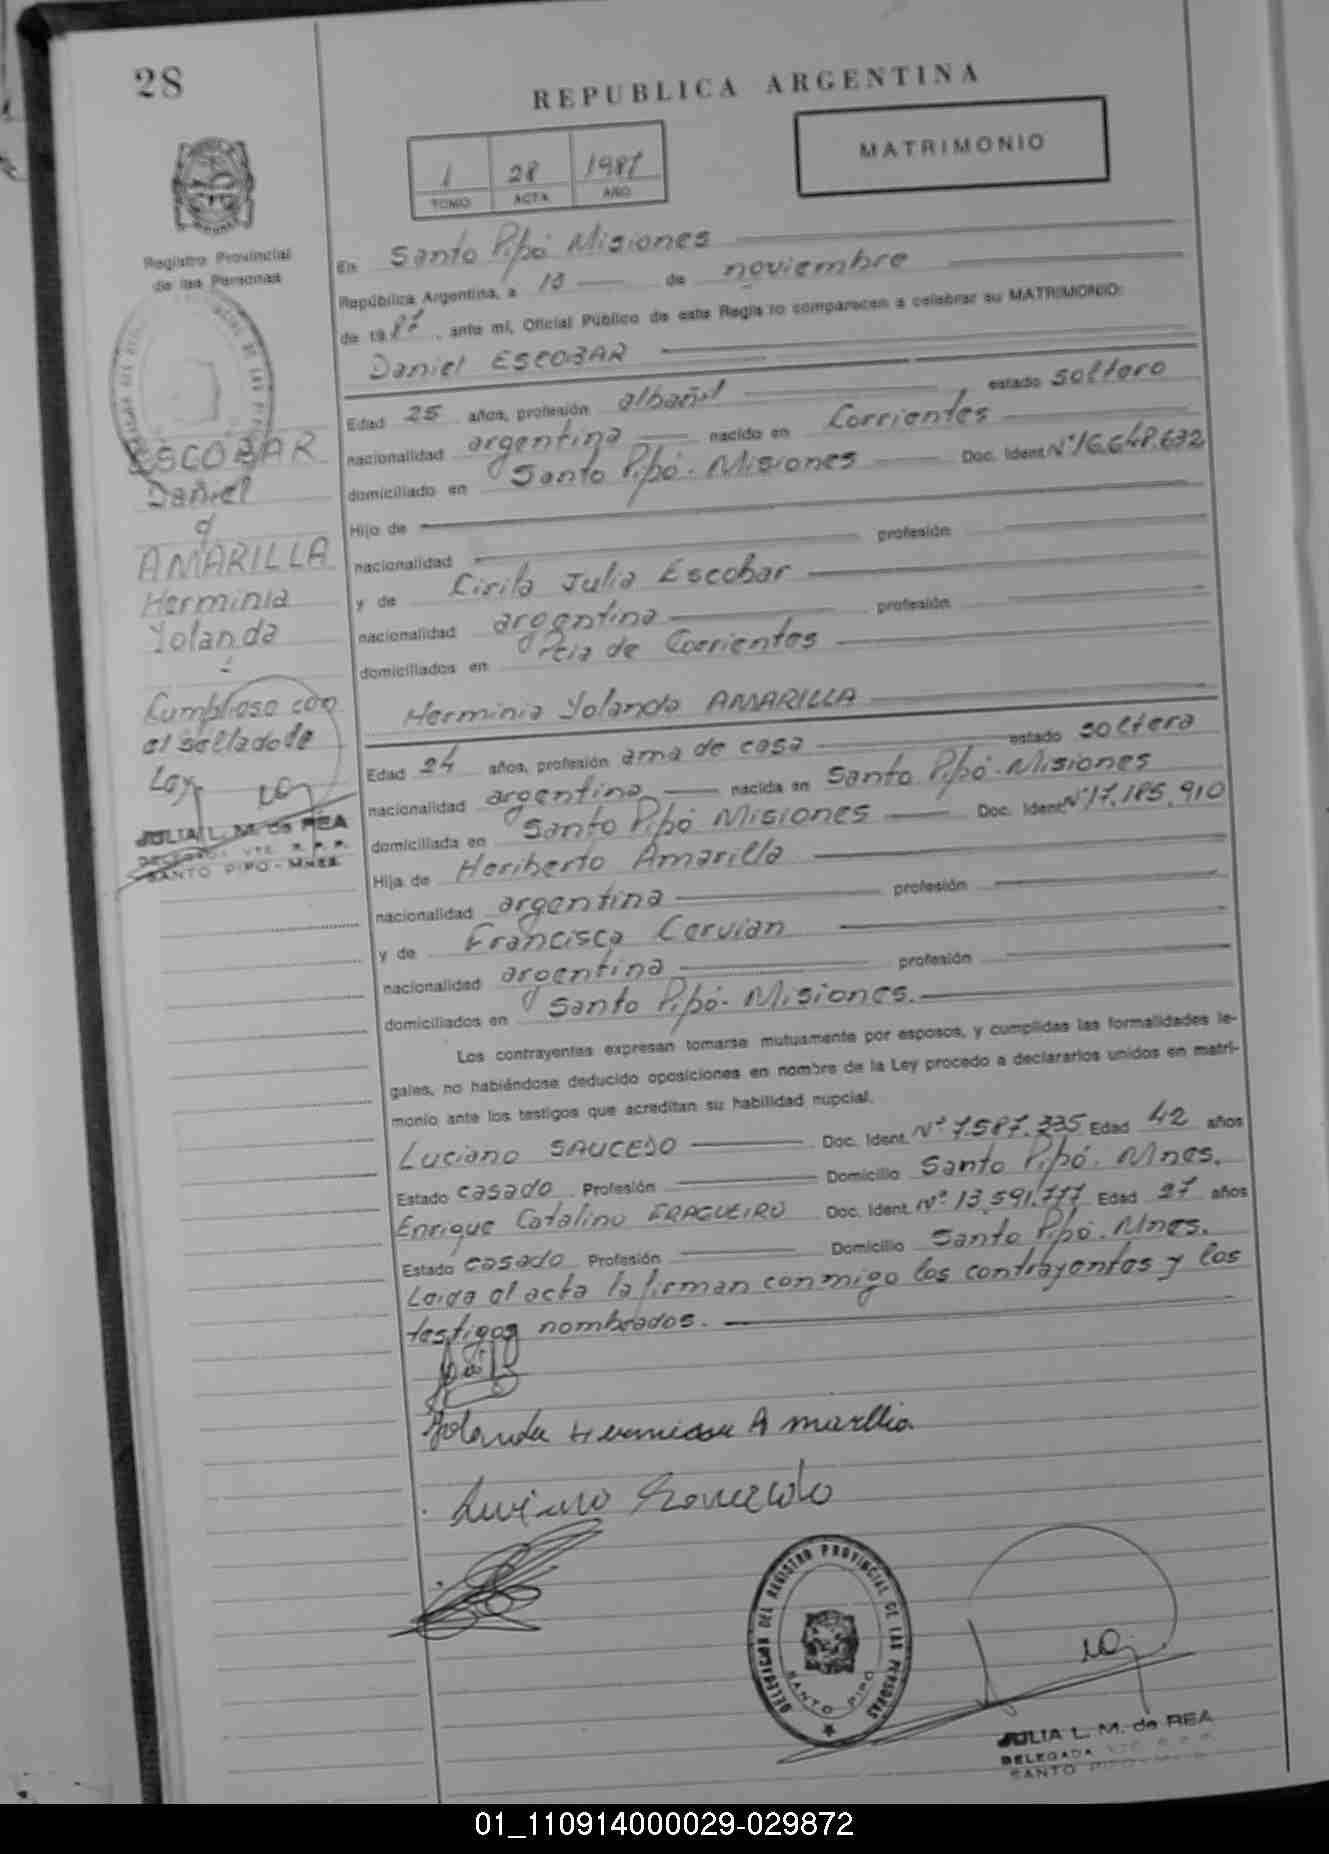 28
REPUBLICA ARGENTINA
1 28 1987
TOMO ACTA AÑO
MATRIMONIO
Registro Provincial
de las Personas
En Santo Pipó Misiones
República Argentina, a 13 de noviembre
de 1987, ante mí, Oficial Público de este Registro comparecen a celebrar su MATRIMONIO:
Daniel ESCOBAR
Edad 25 años, profesión albañil estado soltero
nacionalidad argentina nacido en Corrientes
domiciliado en Santo Pipó-Misiones Doc. Ident Nº16.648.632
Hijo de
nacionalidad profesión
y de Cirila Julia Escobar
nacionalidad argentina profesión
domiciliados en Pcia de Corrientes
ESCOBAR
Daniel
y
AMARILLA
Herminia
Yolanda
Cumplioso con
el sellado de
Ley
JULIA L. M. de REA
DELEGADA VTE. R. P. P.
SANTO PIPO - MNES
Herminia Yolanda AMARILLA
Edad 24 años, profesión ama de casa estado soltera
nacionalidad argentina nacida en Santo Pipó-Misiones
domiciliada en Santo Pipó Misiones Doc. Ident Nº17.185.910
Hija de Heriberto Amarilla
nacionalidad argentina profesión
y de Francisca Cervian
nacionalidad argentina profesión
domiciliados en Santo Pipó-Misiones.
Los contrayentes expresan tomarse mutuamente por esposos, y cumplidas las formalidades le-
gales, no habiéndose deducido oposiciones en nombre de la Ley procedo a declararlos unidos en matri-
monio ante los testigos que acreditan su habilidad nupcial.
Luciano SAUCEDO Doc. Ident. Nº 7.587.335 Edad 42 años
Estado casado Profesión Domicilio Santo Pipó. Mnes.
Enrique Catalino FRAGUEIRO Doc. Ident. Nº 13.591.777 Edad 27 años
Estado casado Profesión Domicilio Santo Pipó. Mnes.
Leida el acta la firman conmigo los contrayentes y los
testigos nombrados.
Yolanda Herminia Amarilla
Luciano Saucedo
DELEGACION DEL REGISTRO PROVINCIAL DE LAS PERSONAS
SANTO PIPO
JULIA L. M. de REA
DELEGADA VTE. R. P. P.
SANTO PIPO - MNES
01_110914000029-029872